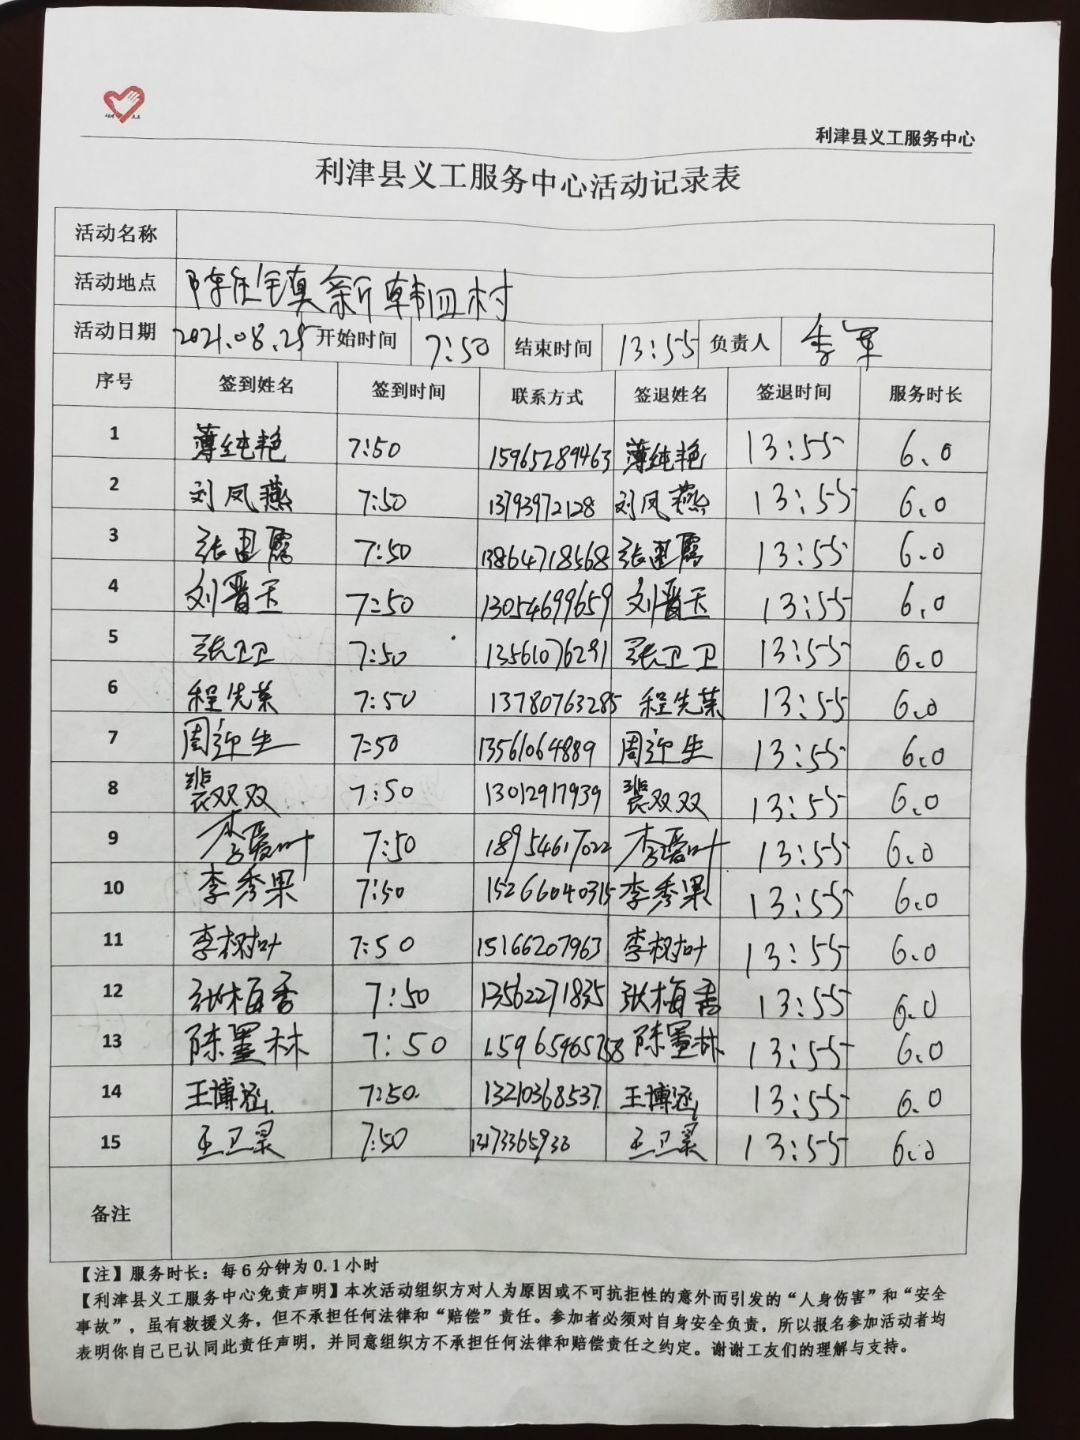 利津县义工服务中心
利津县义工服务中心活动记录表
活动名称
活动地点 陈庄镇新韩四村
活动日期 2021.08.25 开始时间 7:50 结束时间 13:55 负责人 李军
序号 签到姓名 签到时间 联系方式 签退姓名 签退时间 服务时长
1 薄纯艳 7:50 15965289463 薄纯艳 13:55 6.0
2 刘凤燕 7:50 13793972128 刘凤燕 13:55 6.0
3 7:50 13864718568 13:55 6.0
4 刘晋玉 7:50 13054699659 刘晋玉 13:55 6.0
5 张卫卫 7:50 13561076291 张卫卫 13:55 6.0
6 程先荣 7:50 13780763285 程先荣 13:55 6.0
7 周迎生 7:50 13561064889 周迎生 13:55 6.0
8 裴双双 7:50 13012917939 裴双双 13:55 6.0
9 李爱叶 7:50 18954617022 李爱叶 13:55 6.0
10 李秀果 7:50 15266040315 李秀果 13:55 6.0
11 李树叶 7:50 15166207963 李树叶 13:55 6.0
12 张梅香 7:50 13562271835 张梅香 13:55 6.0
13 陈墨林 7:50 15965965758 陈墨林 13:55 6.0
14 王博涵 7:50 13210368537 王博涵 13:55 6.0
15 7:50 13:55 6.0
备注
【注】服务时长：每6分钟为0.1小时
【利津县义工服务中心免责声明】本次活动组织方对人为原因或不可抗拒性的意外而引发的“人身伤害”和“安全
事故”，虽有救援义务，但不承担任何法律和“赔偿”责任。参加者必须对自身安全负责，所以报名参加活动者均
表明你自己已认同此责任声明，并同意组织方不承担任何法律和赔偿责任之约定。谢谢工友们的理解与支持。